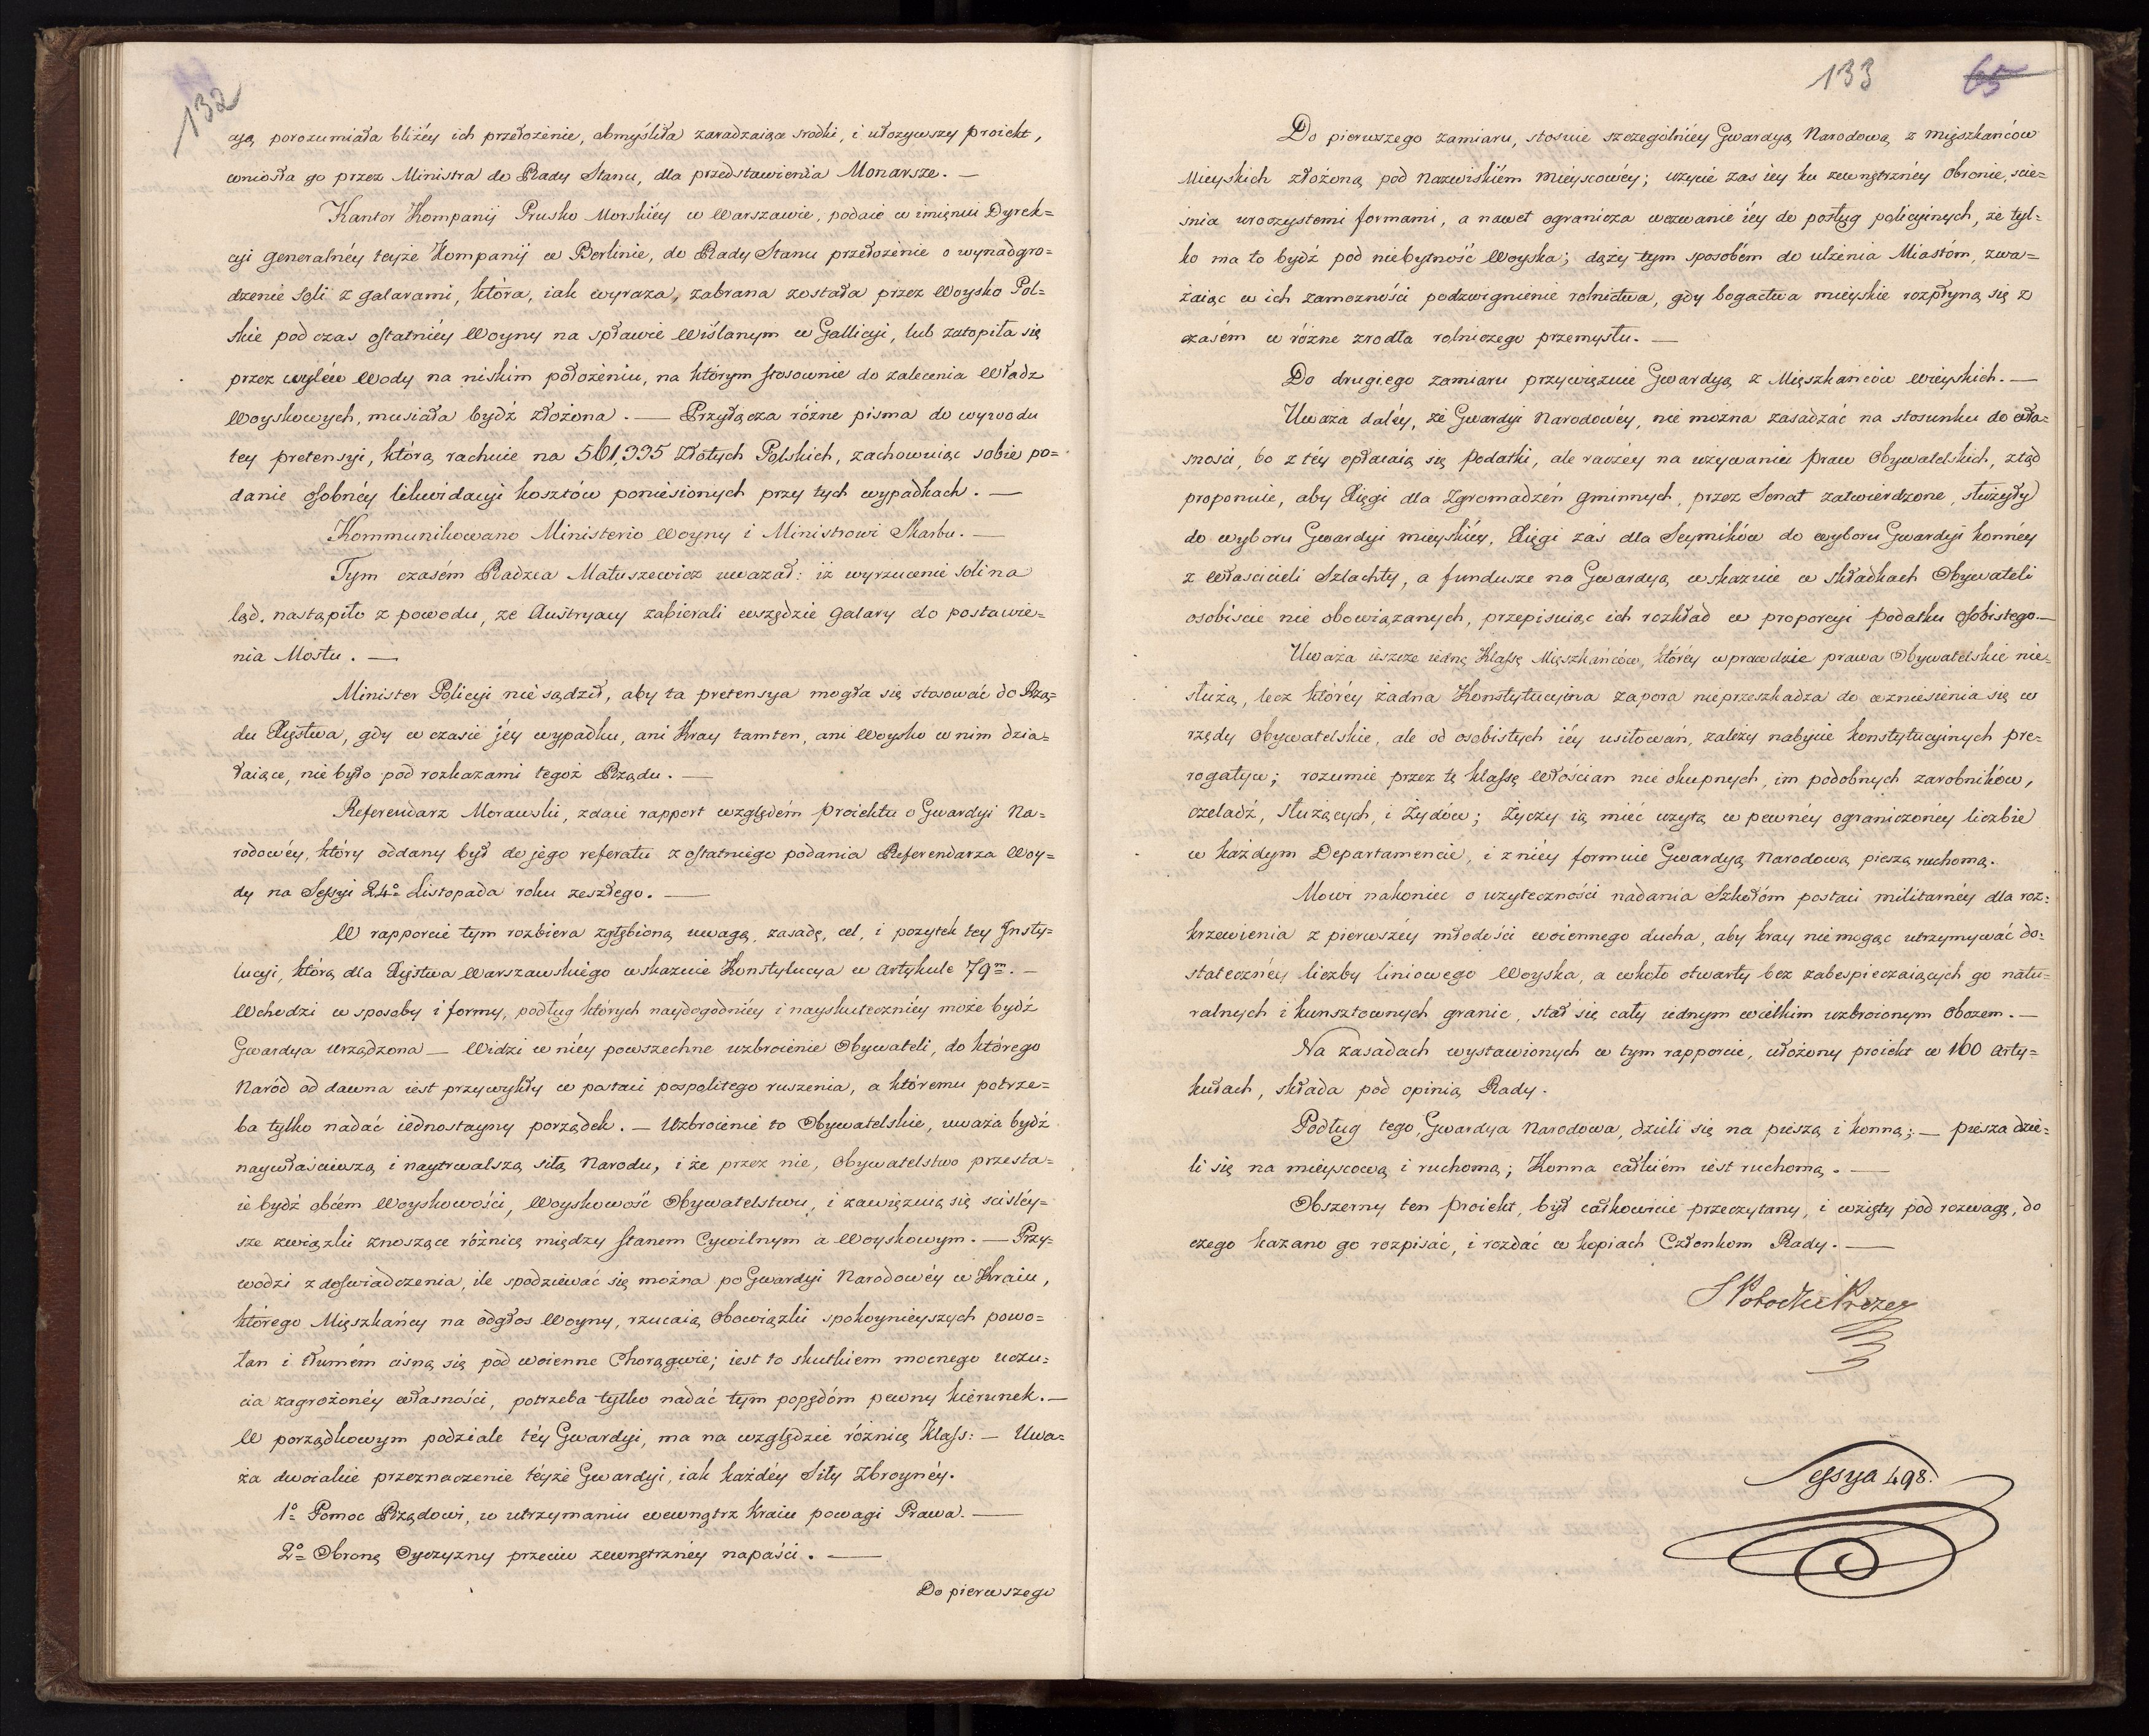 132
cyą porozumiała bliżéy ich przełożenie, obmyśliła zaradzaiące srodki, i ułożywszy proiekt,
wniosła go przez Ministra do Rady Stanu, dla przedstawienia Monarsze. —
Kantor Kompanij Prusko Morskiéy w Warszawie, podaie w imieniu Dyrek=
cyi generalnéy teyże Kompanij w Berlinie, do Rady Stanu przełożenie o wynadgro=
dzenie Soli z galarami, która, iak wyraza, zabrana została przez Woysko Pol=
skie pod czas ostatniéy Woyny na spławie Wiślanym w Gallicyi, lub zatopiła się
przez wylew Wody na niskim położeniu, na którym stosownie do zalecenia Władz
Woyskowych, musiała bydź złożona. — Przyłącza różne pisma do wywodu
tey pretensyi, którą rachuie na 561,995 Złotych Polskich, zachowuiąc sobie po=
danie osobnéy likwidacyi kosztów poniesionych przy tych wypadkach. —
Kommunikowano Ministerio Woyny i Ministrowi Skarbu. —
Tym czasém Radzca Matuszewicz uważał: iż wyrzucenie soli na
ląd, nastąpiło z powodu, ze Austryacy zabierali wszędzie galary do postawie=
nia Mostu. —
Minister Policyi nie sądził, aby ta pretensya mogła się stosować do Rzą=
du Xięstwa, gdy w czasie jéy wypadku, ani Kray tamten, ani Woysko w nim dzia=
łaiące, nie było pod rozkazami tegoż Rządu. —
Referendarz Morawski, zdaie rapport względém proiektu o Gwardyi Na=
rodowéy, który oddany był do jego referatu z ostatniego podania Referendarza Woy=
dy na Sessyi 24º Listopada roku zeszłego. —
W rapporcie tym rozbiera zgłębioną uwagą, zasadę, cel, i pożytek tey Insty=
tucyi, którą dla Xięstwa Warszawskiego wskazuie Konstytucya w Artykule 79m. —
Wchodzi w sposoby i formy, podług których naydogodniéy i nayskuteczniéy może bydź
Gwardya urządzona — Widzi w niéy powszechne uzbroienie Obywateli, do którego
Naród od dawna iest przywykły w postaci pospolitego ruszenia, a któremu potrze=
ba tylko nadać iednostayny porządek. — Uzbroienie to Obywatelskie, uważa bydź
naywłaściwszą i naytrwalszą siłą Narodu, i że przez nie, Obywatelstwo przesta=
ie bydź obcém Woyskowości, Woyskowość Obywatelstwu, i zawięzuią się sciśléy=
sze związki znoszące różnicę między stanem Cywilnym a Woyskowym. — Przy=
wodzi z doświadczenia, ile spodziewać się można po Gwardyi Narodowéy w Kraiu,
którego Mięszkańcy na odgłos Woyny, rzucaią Obowiązki spokoynieyszych powo=
łan i tłumém cisną się pod woienne Chorągwie; iest to skutkiem mocnego uczu=
cia zagrożonéy własności, potrzeba tylko nadać tym popędóm pewny kierunek. —
W porządkowym podziale téy Gwardyi, ma na względzie różnicę Klass: — Uwa=
ża dwoiakie przeznaczenie téyże Gwardyi, iak każdéy Siły Zbroynéy.
1º Pomoc Rządowi, w utrzymaniu wewnątrz Kraiu powagi Prawa. —
2º Obronę Oyczyzny przeciw zewnętrznéy napaści. —
Do pierwszego
133
65
Do pierwszego zamiaru, stosuie szczególniéy Gwardyą Narodową z mięszkańców
Mieyskich złożoną pod nazwiskiém mieyscowéy; użycie zas iéy ku zewnętrznéy obronie, scie=
śnia uroczystemi formami, a nawet ogranicza wezwanie iéy do posług policyinych, że tyl=
ko ma to bydź pod niebytność Woyska; dąży tym sposobém do ulżenia Miastóm, zwa=
żaiąc w ich zamożności podzwignienie rolnictwa, gdy bogactwa mieyskie rozpłyną się z
czasém w różne zrodła rolniczego przemysłu. —
Do drugiego zamiaru przywięzuie Gwardyą z Mięszkańców wieyskich. —
Uważa daléy, że Gwardyi Narodowéy, nie można zasadzać na stosunku do wła=
sności, bo z téy opłacaią się podatki, ale raczéy na używaniu praw Obywatelskich, ztąd
proponuie, aby Xięgi dla Zgromadzén gminnych, przez Senat zatwierdzone, służyły
do wyboru Gwardyi mieyskiéy, Xięgi zaś dla Seymików do wyboru Gwardyi konnéy
z właścicieli Szlachty, a fundusze na Gwardyą wskazuie w składkach Obywateli
osobiscie nie obowiązanych, przepisuiąc ich rozkład w proporcyi podatku osobistego. —
Uważa ieszcze iednę Klassę Mięszkańców, któréy wprawdzie prawa Obywatelskie nie=
służą, lecz któréy żadna Konstytucyina zapora nieprzeszkadza do wzniesienia się w
rzędy Obywatelskie, ale od osobistych iéy usiłowań, zależy nabycie konstytucyinych pre=
rogatyw; rozumie przez tę klassę Włościan nie okupnych, im podobnych zarobników,
czeladź, służących, i Żydów; życzy ią mieć użytą w pewnéy ograniczonéy liczbie
w każdym Departamencie, i z niéy formuie Gwardyą Narodową pieszą ruchomą.
Mowi nakoniec o użyteczności nadania Szkołóm postaci militarnéy dla roz=
krzewienia z pierwszéy młodości woiennego ducha, aby kray niemogąc utrzymywać do=
statecznéy liczby liniowego Woyska, a wkoło otwarty bez zabespieczaiących go natu=
ralnych i kunsztownych granic, stał się cały iednym wielkim uzbroionym Obozem. —
Na zasadach wystawionych w tym rapporcie, ułożony proiekt w 160 arty=
kułach, składa pod opinią Rady.
Podług tego, Gwardya Narodowa, dzieli się na pieszą i konną; — piesza dzie=
li się na mieyscową i ruchomą; Konna całkiém iest ruchomą. —
Obszerny ten proiekt, był całkowicie przeczytany, i wzięty pod rozwagę, do
czego kazano go rozpisać, i rozdać w kopiach Członkom Rady. —
S Potocki Prezes
Sessya 498.